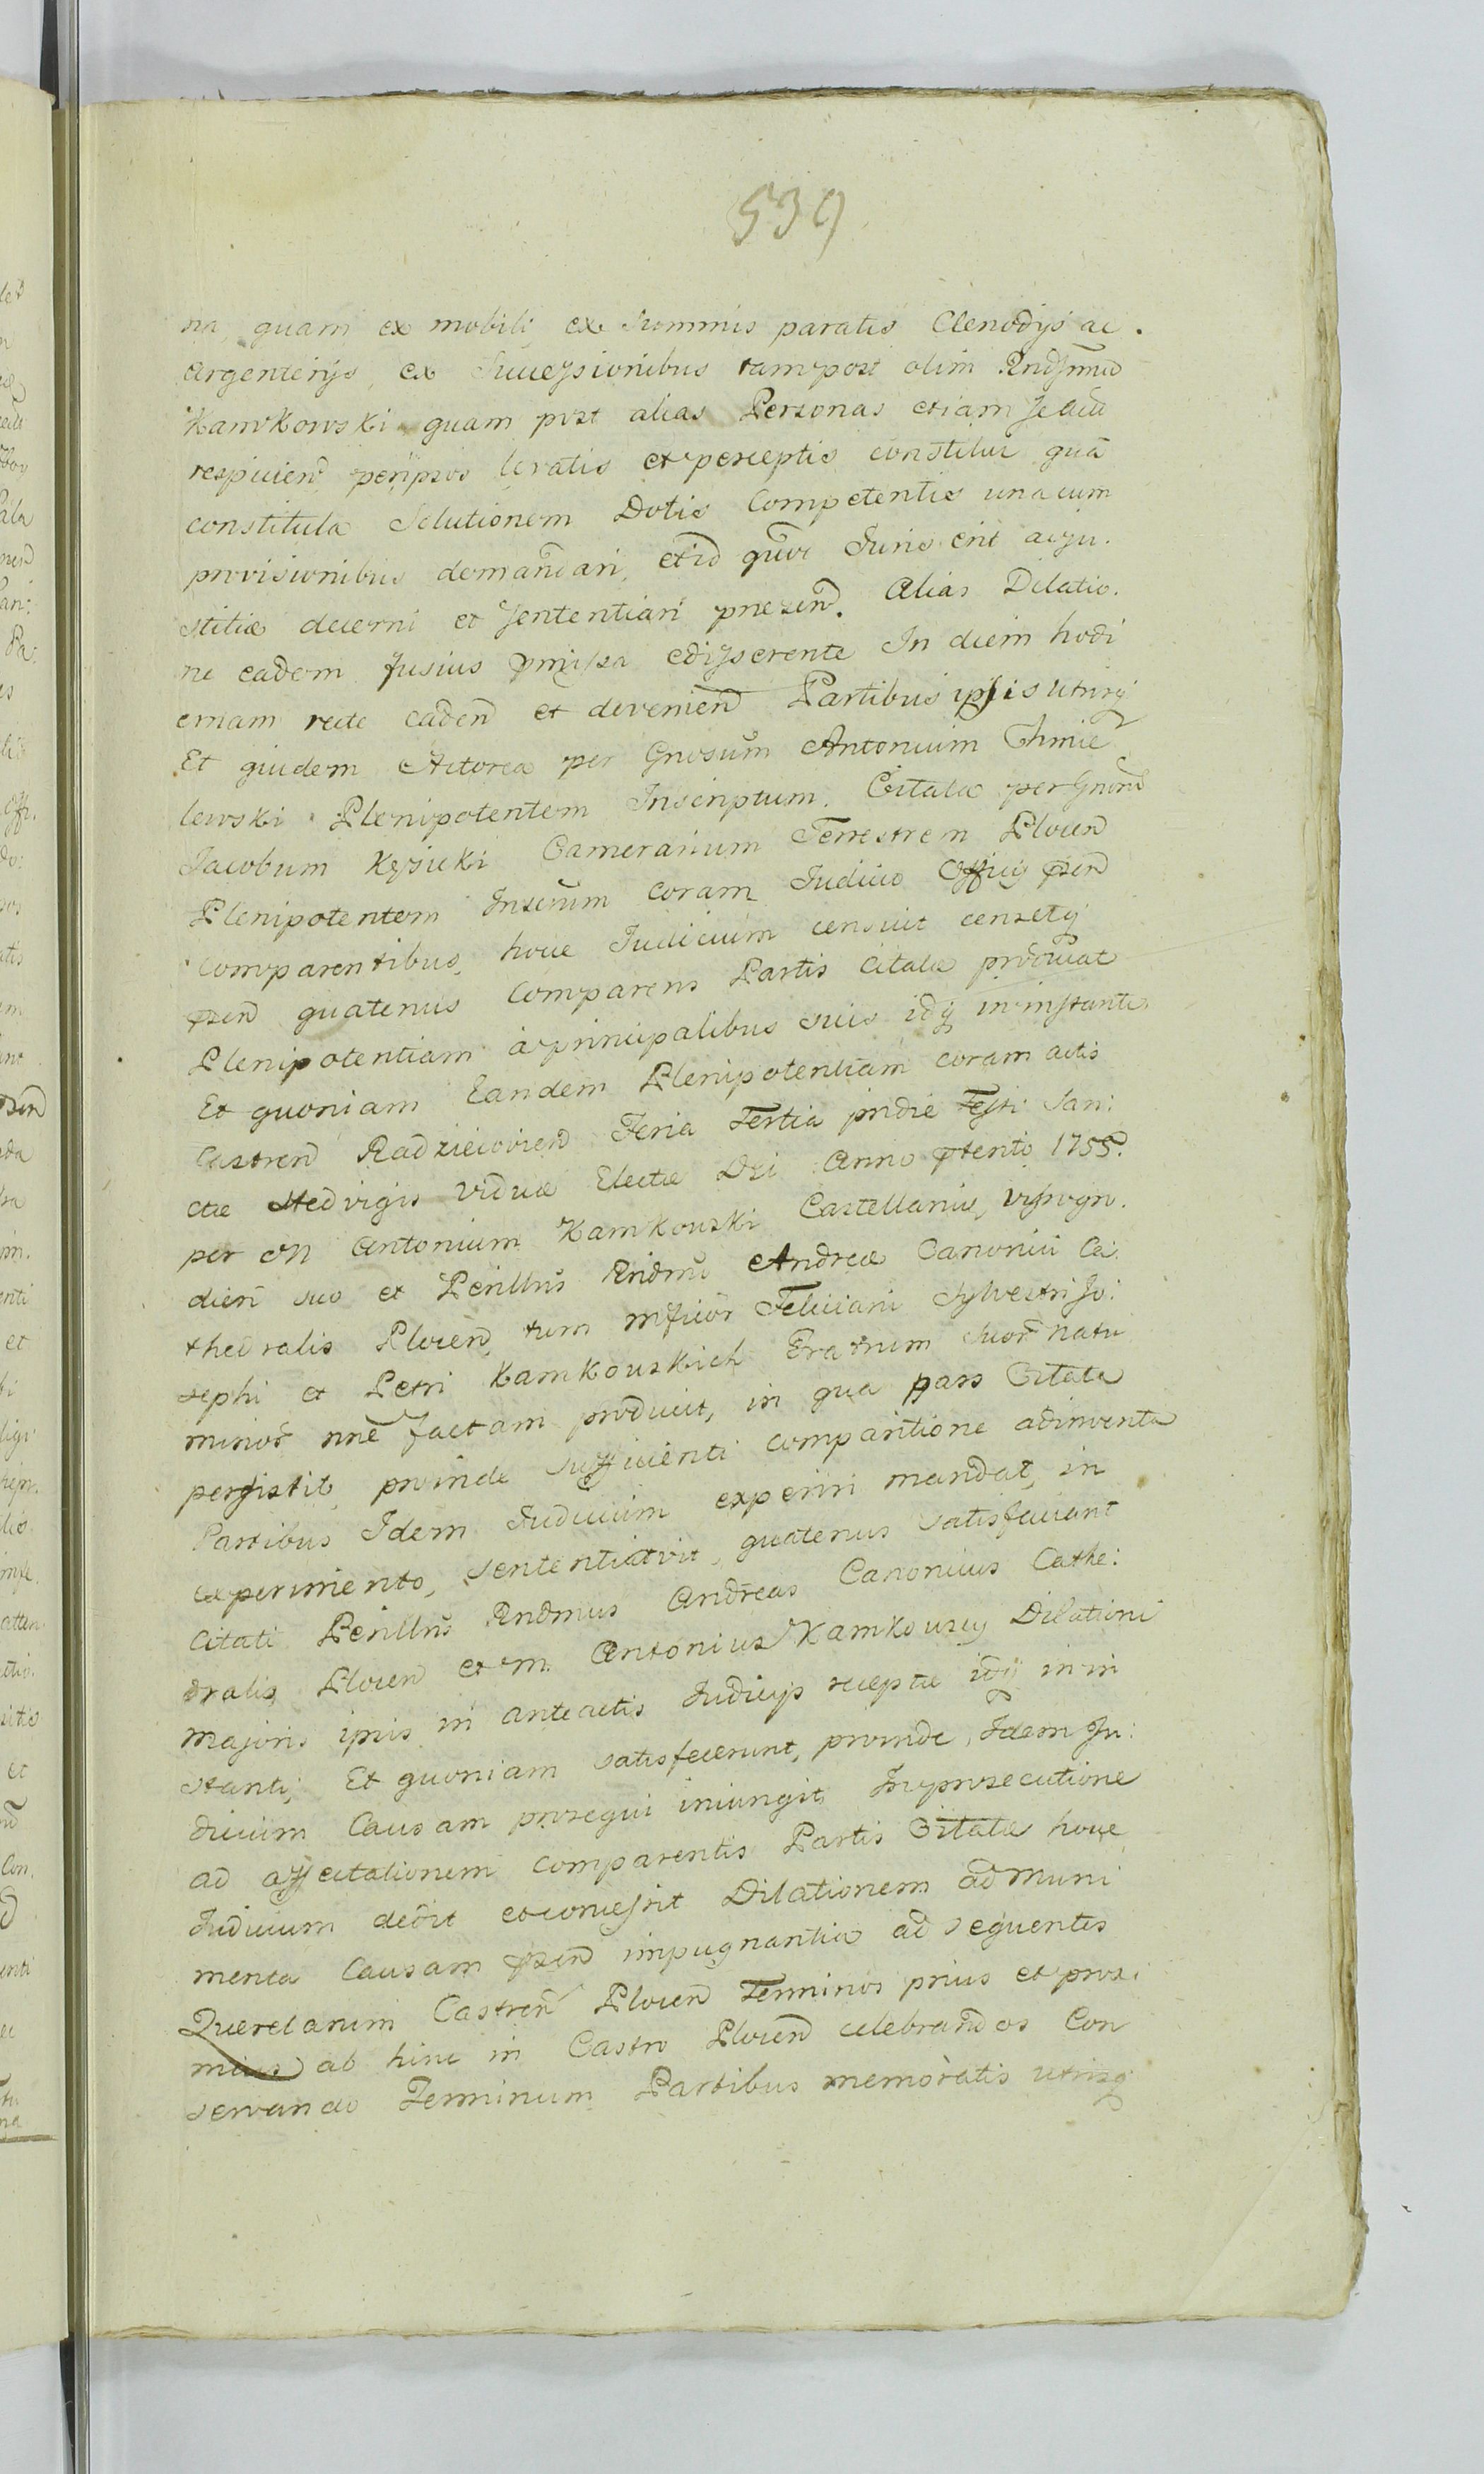 539
na, quam ex mobili, ex Summis paratis Clenodÿs ac
argenterÿs, ex Successionibus tam post olim Rndssmũ
Kamkowski quam post alias Personas etiam se
respicien̄ per ipsos levatis et perceptis constitui quā
constituta Solutionem Dotis Competentis una cum
provisionibus demandari, et id qūod Juris erit ac ju.
stitiæ decerni et sententiari presen̄. Alias Dilatio.
ne eadem fusius p̄missa edisserente In diem hodi
ernam recte caden̄ et devenien̄ Partibus ipsis utrinq̄
Et quidem Actorea per Gnosūm Antonium Chmie
lewski Plenipotentem Inscriptum. Citata per Gnosūm
Jacobum Kęsicki Camerarium Terrestrem Plocen̄
Plenipotentem Inscrūm coram Judicio Officÿ p̄sen̄
comparentibus, hocce Judicium censuit censetq̄
p̄sen̄ quatenus Comparens Partis Citatæ prōducat
Plenipotentiam à principalibus suis idq̄ in instanti,
Et quoniam Eandem Plenipotentiam coram actis
Castren̄ Radzieiovien̄ Feria Tertia pridie Festi San:
ctæ Hedvigis Viduæ Electæ Dei Anno p̄terito 1755.
per M Antonium Kamkowski Castellanic,
dien̄ suo et Perillus̄ Rndmi Andreæ Canonici Ca:
thedralis Plocen̄, tum Mficor̄ Feliciani Sylvestri Jo:
sephi et Petri Kamkowskich Fratrum suor̄ natu
minor̄ nn̄e factam producit, in qua pars Citata
persistit, proinde sufficienti comparitione adinventa
Partibus Idem Judicium experiri mandat, in
experimento, Sententiavit, quatenus satisfaciant
Citati Perillus̄ Rndmus Andreas Canonicus Cathe:
dralis Plocen̄ et M. Antonius Kamkowscy Dilationi
Majoris ipsis in anteactis Judicÿs receptæ idq̄ in in
stanti, Et quoniam satisfecerunt, proinde, Idem Ju:
dicium Causam prosequi iniungit, In prosecutione
ad affectationem comparentis Partis Citatæ hocce
Judicium dedit et concessit Dilationem ad Muni
menta Causam p̄sen̄ impugnantia ad sequentes
Querelarum Castren̄ Plocen̄ Terminos prius et proxi
mius ab hinc in Castro Plocen̄ celebrandos Con
servando Terminum Partibus memoratis utrinq̄